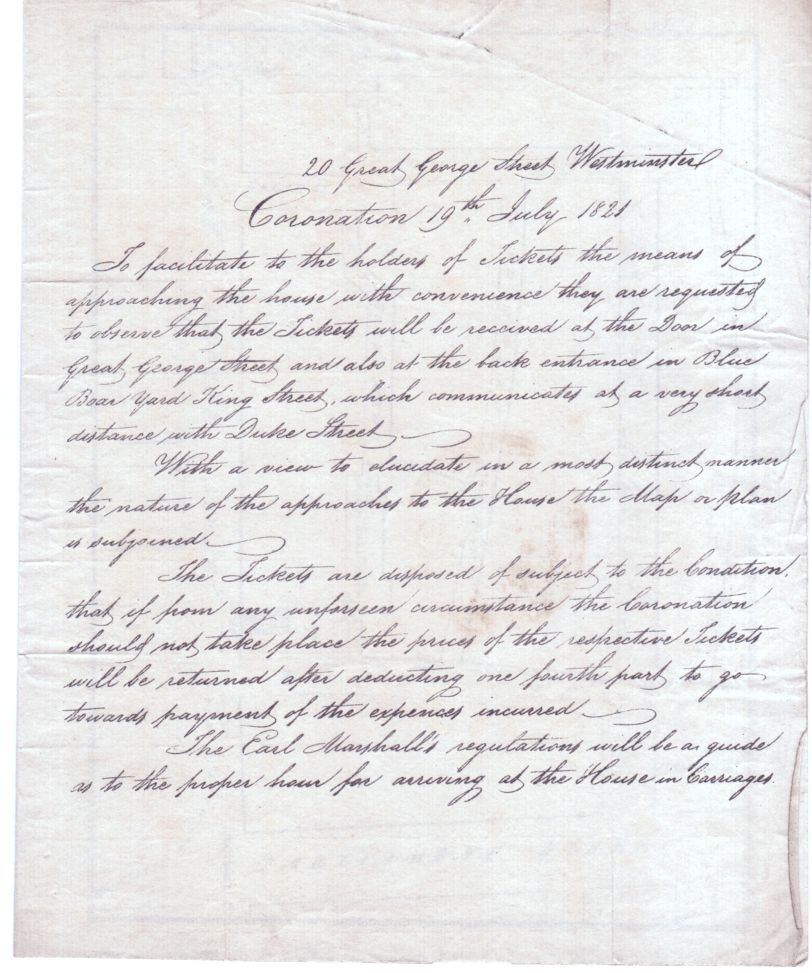 20 Great George Street Westminster
Coronation 19th July 1821
To facilitate to the holders of Tickets the means of
approaching the house with convenience they are requested
to observe that the Tickets will be received at the Door in
Great George Street and also at the back entrance in Blue
Boar Yard King Street, which communicates at a very short
distance with Duke Street
With a view to elucidate in a most distinct manner
the nature of the approaches to the House the Map or plan
is subjoined.
The Tickets are disposed of subject to the Condition,
that if from any unforseen circumstance the Coronation
should not take place the prices of the respective Tickets
will be returned after deducting one fourth part to go
towards payment of the expences incurred
The Earl Marshall's regulations will be a guide
as to the proper hour for arriving at the House in Carriages.